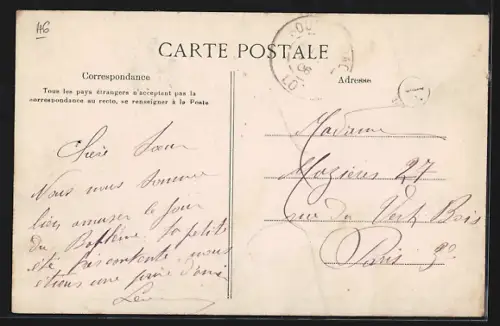 46
CARTE POSTALE
Correspondance
Tous les pays étrangers n'acceptant pas la
correspondance au recto, se renseigner à la Poste
Adresse
Chère Sœur
Nous nous sommes
bien amuser le jour
du Baptême. La petite
été très contente, nous
étions une
Madame
Mozières 27
rue du Vert Bois
Paris 3e